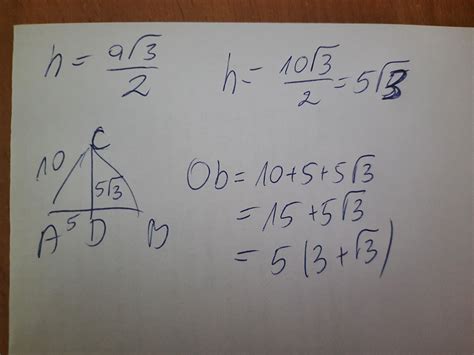 h = a√3/2
h = 10√3/2 = 5√3
C
10
5√3
A 5 D B
Ob = 10+5+5√3
= 15+5√3
= 5(3+√3)